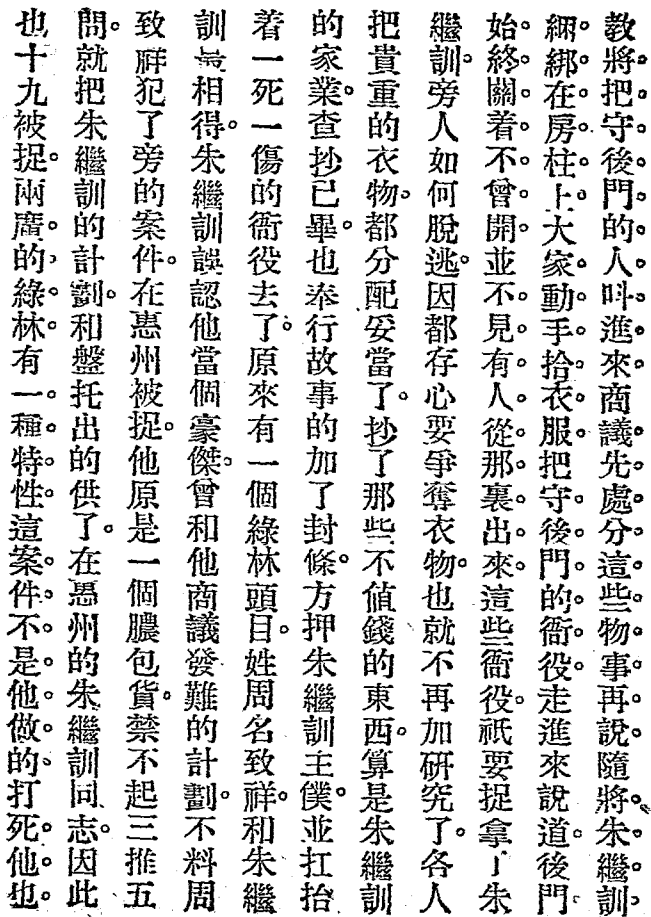 教將把守後門的人叫進來商議先處分這些物事再說隨將朱繼訓
綑綁在房柱上大家動手拾衣服把守後門的衙役走進來說道後門
始終關着不曾開並不見有人從那裏出來這些衙役祇要捉拿了朱
繼訓旁人如何脫逃因都存心要爭奪衣物也就不再加研究了各人
把貴重的衣物都分配妥當了抄了那些不値錢的東西算是朱繼訓
的家業查抄已畢也奉行故事的加了封條方押朱繼訓主僕並扛抬
着一死一傷的衙役去了原來有一個綠林頭目姓周名致祥和朱繼
訓最相得朱繼訓誤認他當個豪傑曾和他商議發難的計劃不料周
致祥犯了旁的案件在惠州被捉他原是一個膿包貨禁不起三推五
問就把朱繼訓的計劃和盤托出的供了在惠州的朱繼訓同志因此
也十九被捉兩廣的綠林有一種特性這案件不是他做的打死他也